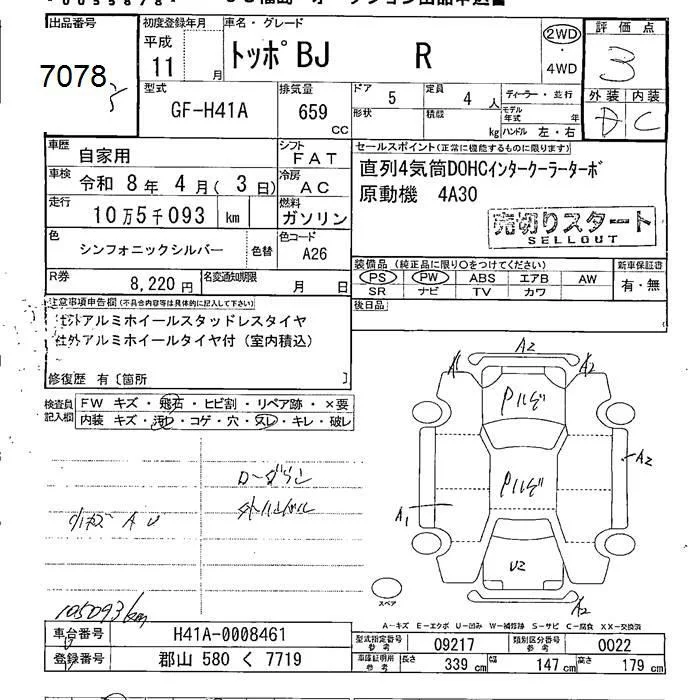 出品番号 初度登録年月 車名・グレード 評価点
7078 平成 11 月 トッポBJ R 2WD ・ 4WD 3
型式 GF-H41A 排気量 659 CC ドア 5 定員 4 人 ディーラー・並行 外装 内装
形状 積載 kg モデル年式 年 ハンドル 左・右 D C
車歴 自家用 シフト FAT セールスポイント(正常に機能するものに限ります)
車検 令和 8年 4月( 3日) 冷房 AC 直列4気筒DOHCインタークーラーターボ
走行 10万5千093 km 燃料 ガソリン 原動機 4A30
売切りスタート
SELLOUT
色 シンフォニックシルバー 色替 色コード A26
装備品(純正品に限り〇をつけてください) 新車保証書
R券 8,220円 名変通知期限 月 日 PS PW ABS エアB AW 有・無
SR ナビ TV カワ
注意事項申告欄(不具合内容等は具体的に記入して下さい) 後日品
社外アルミホイールスタッドレスタイヤ
社外アルミホイールタイヤ付(室内積込)
修復歴 有〔箇所 〕
検査員記入欄 FW キズ・飛石・ヒビ割・リペア跡・×要
内装 キズ・汚れ・コゲ・穴・スレ・キレ・破レ
A2
A1 A2
A2
A1
U2
A2
スペア
105093km
A-キズ E-エクボ U-凹み W-補修跡 S-サビ C-腐食 XX-交換済
車台番号 H41A-0008461 型式指定番号 参考 09217 類別区分番号 参考 0022
登録番号 郡山 580 く 7719 車庫証明用 参考 長さ 339 cm 幅 147 cm 高さ 179 cm